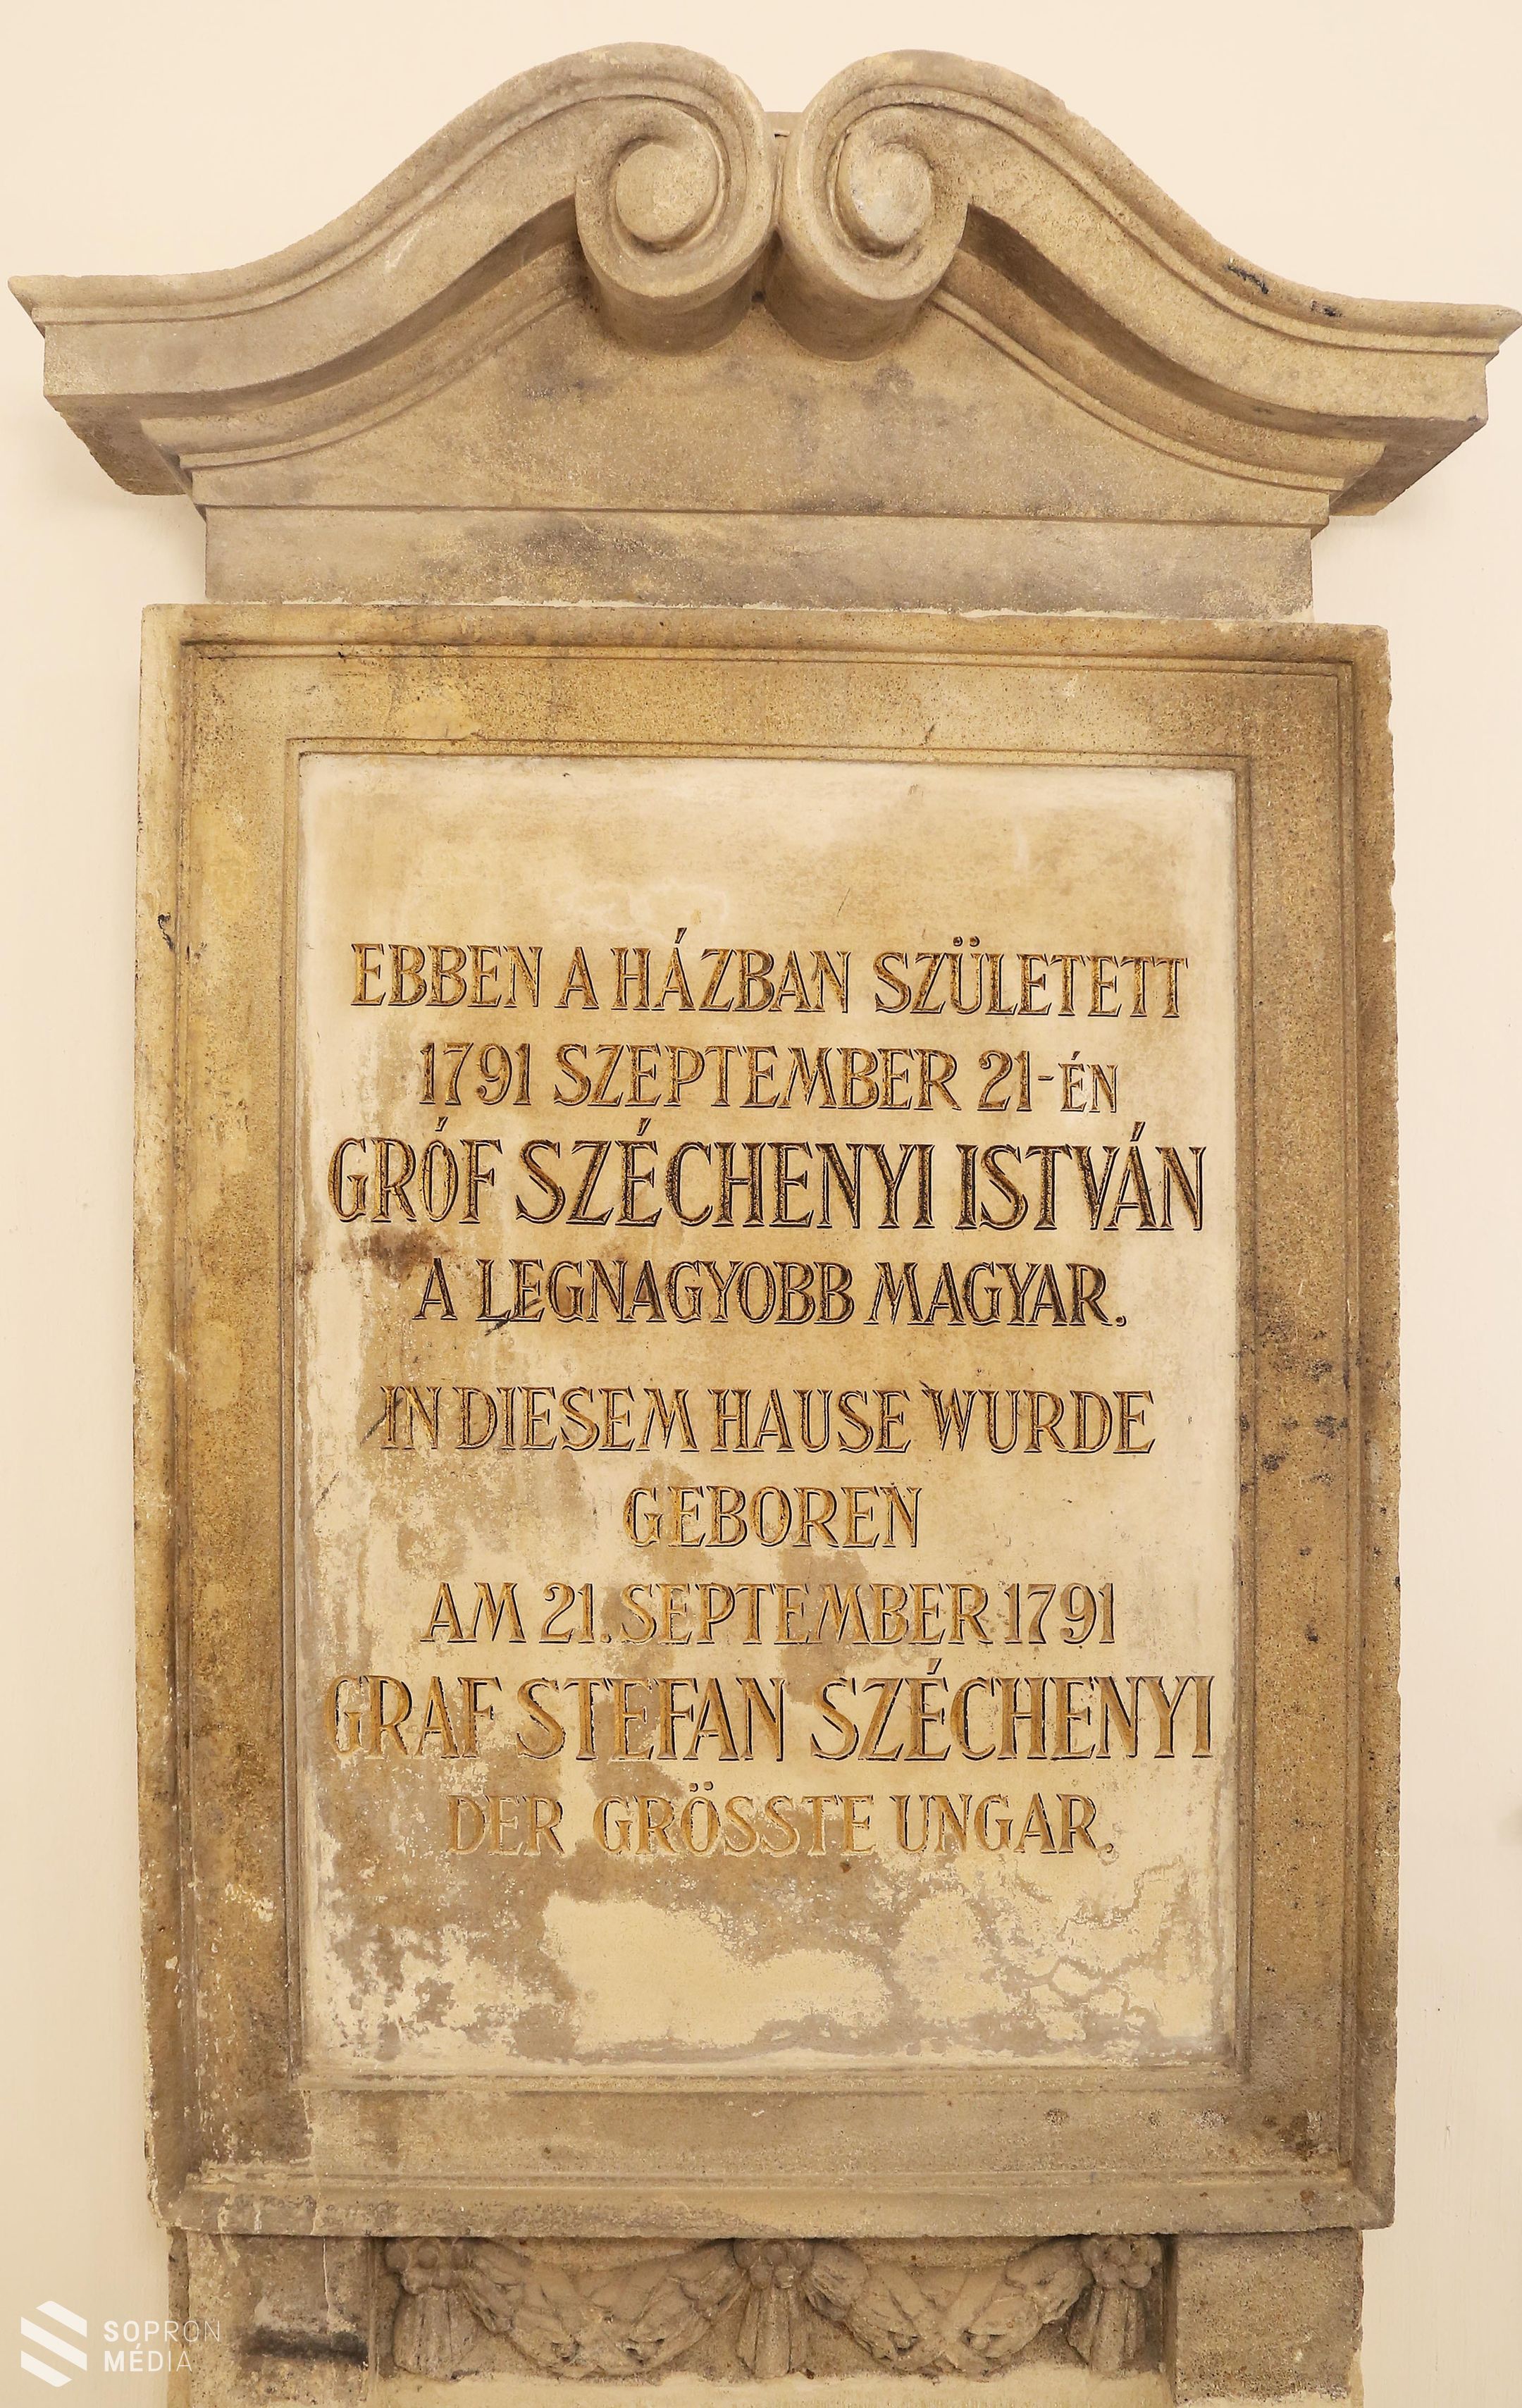 EBBEN A HÁZBAN SZÜLETETT
1791 SZEPTEMBER 21-ÉN
GRÓF SZÉCHENYI ISTVÁN
A LEGNAGYOBB MAGYAR.
IN DIESEM HAUSE WURDE
GEBOREN
AM 21. SEPTEMBER 1791
GRAF STEFAN SZÉCHENYI
DER GRÖSSTE UNGAR.
SOPRON
MÉDIA